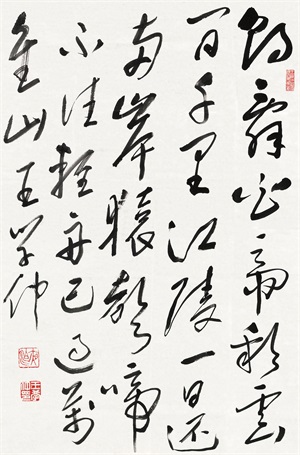 朝辭白帝彩雲
間千里江陵一日還
兩岸猿聲啼
不住輕舟已過萬
重山王學仲